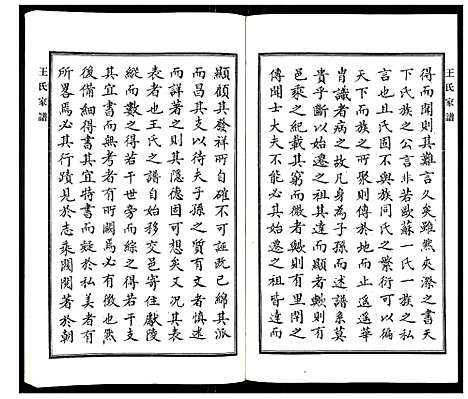 王氏家譜
得而聞則其難言久矣雖然夾漈之書天
下氏族之公言非若歐蘇一氏一族之私
言也且氏固不與族同氏之繁衍可以徧
天下而族之所聚則傳於地而止遥遥華
胄識者病之故凡身為子孫而述譜系莫
貴乎斷以始遷之祖其達而顯者輿則有
邑乘之紀載其窮而微者輿則有里閈之
傳聞士大夫不能必其始遷之祖皆達而
顯顧其發祥所自確不可誣既已綿其派
而昌其支以待夫子孫之賢有力者慎述
而詳著之則其隱德固可想矣又况其表
表者也王氏之譜自始移交邑寄住獻陵
縱而數之得若干世旁而綜之得若干支
其宜書而無考者有所闕焉必有徵也然
後備細得書其宜特書而疑於私美者有
所畧焉必其行蹟見於志乘閥閱著於朝
王氏家譜